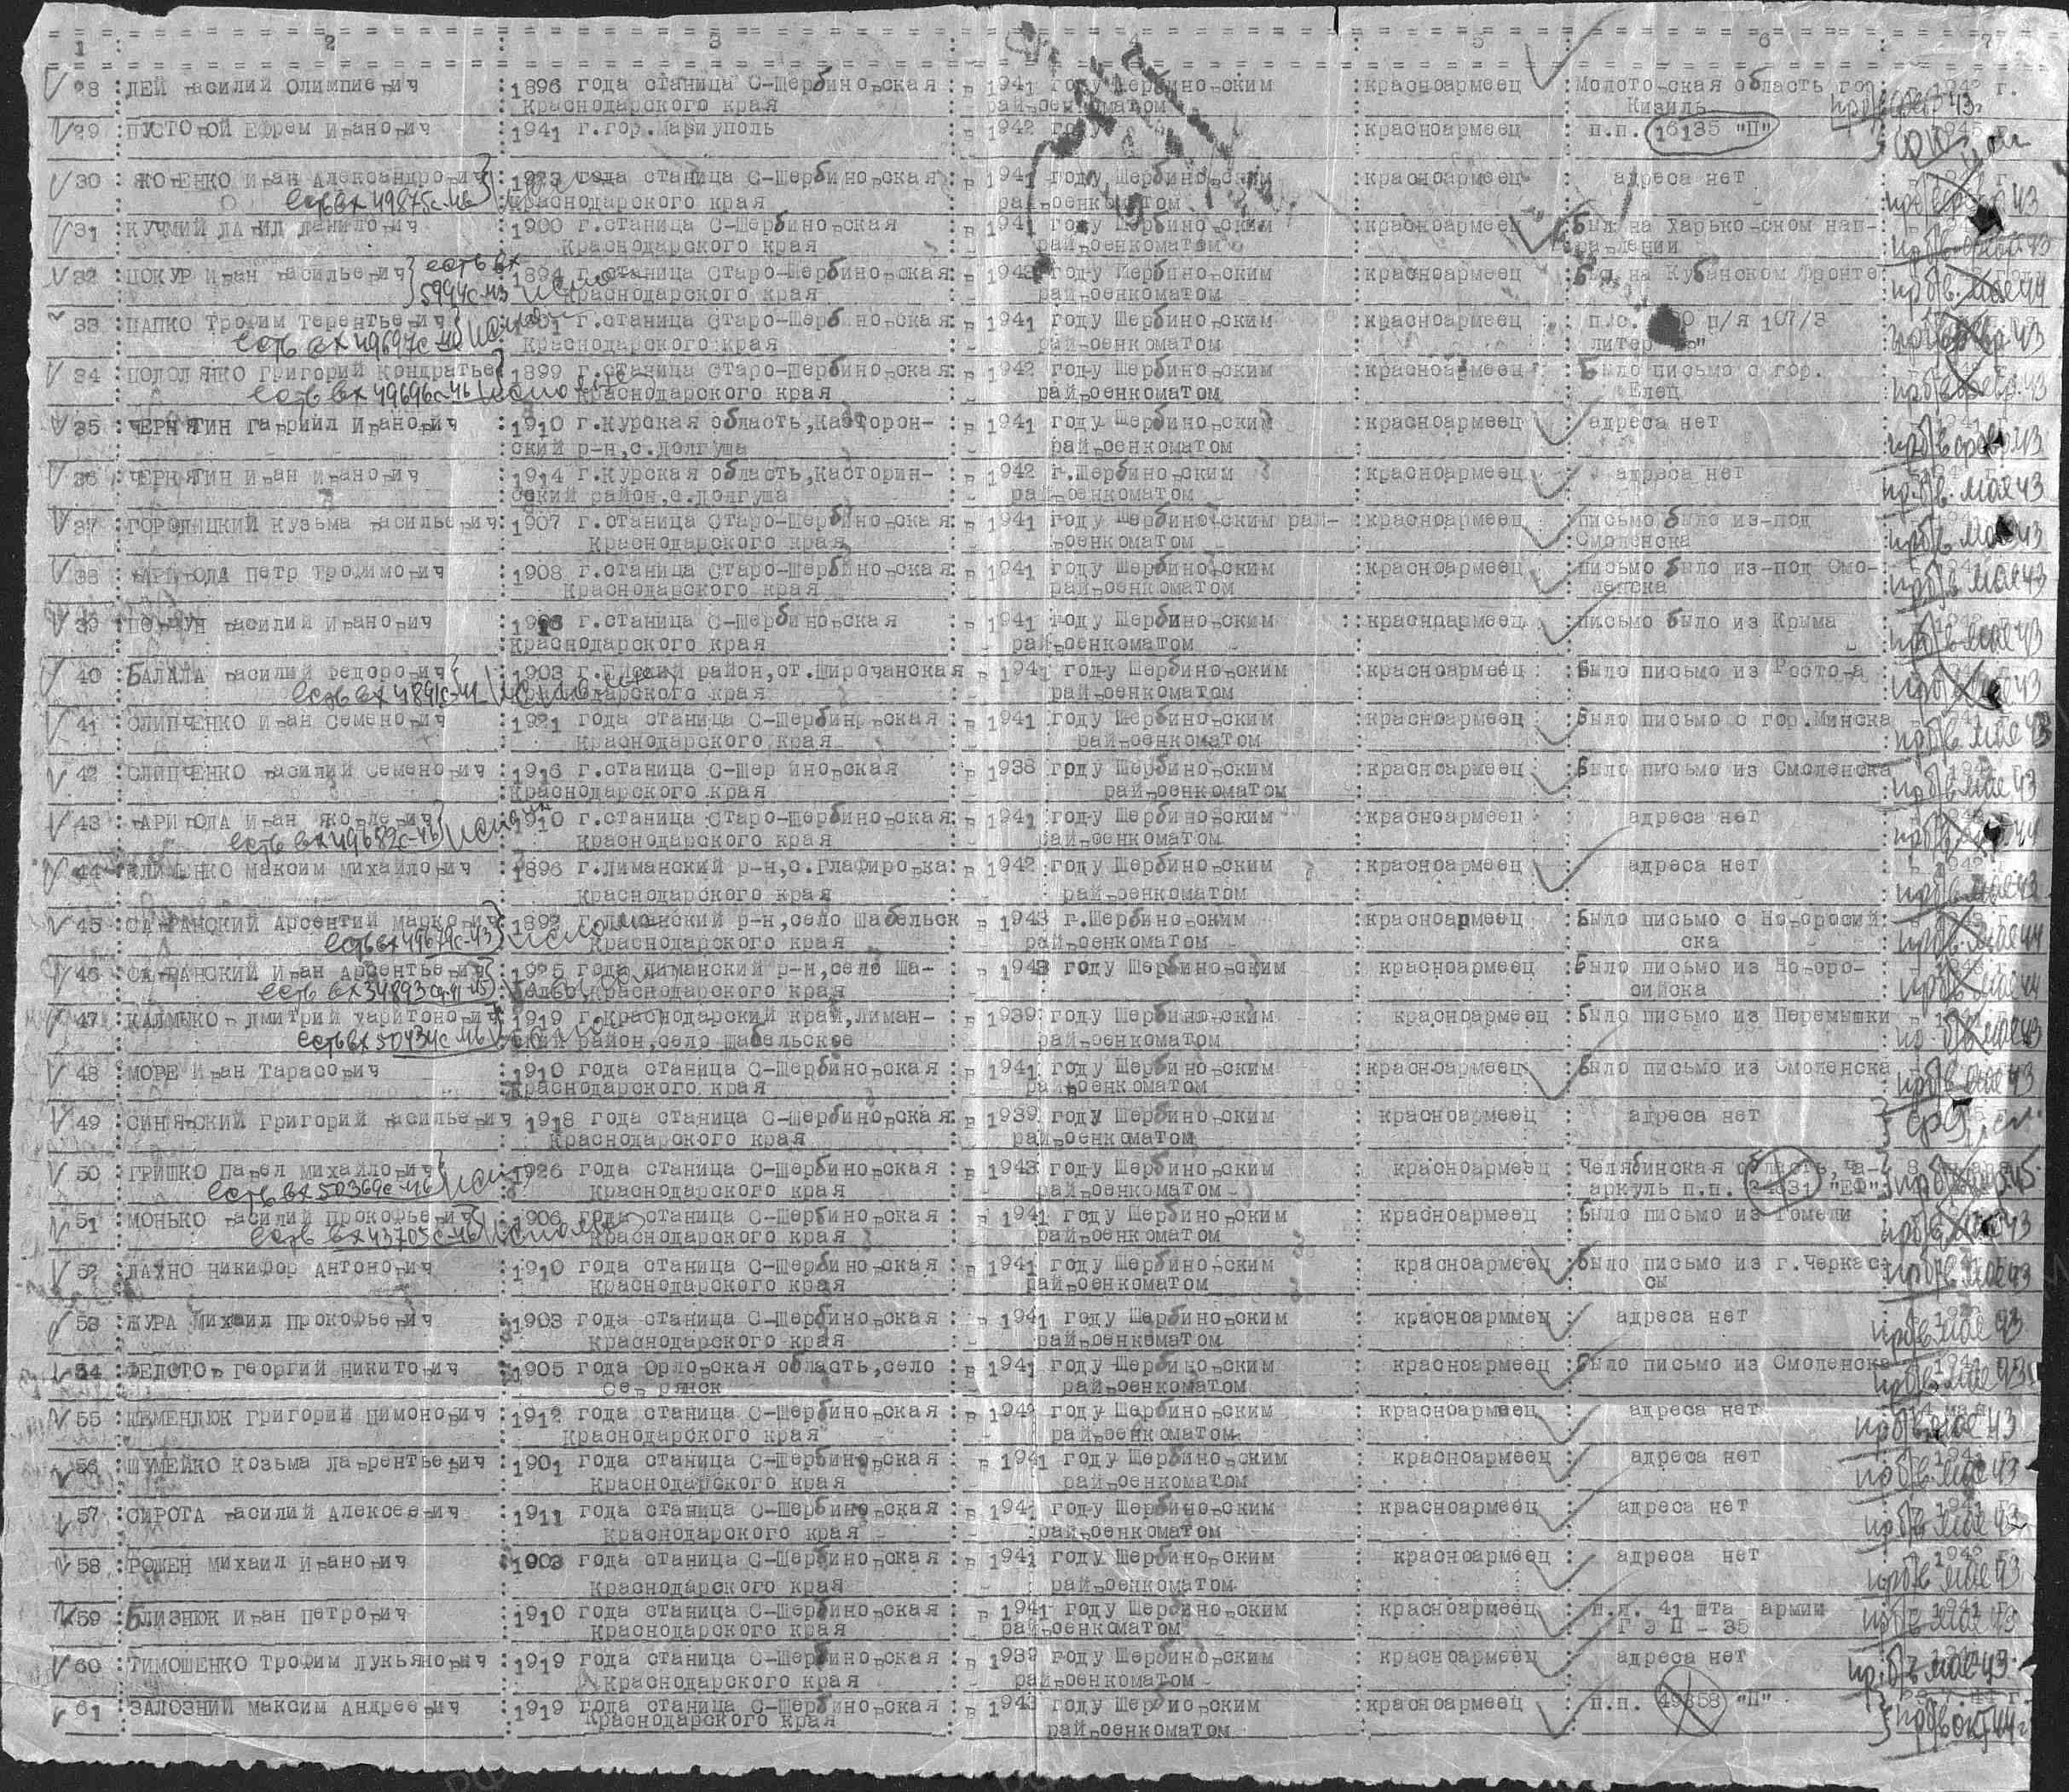 1 2 3 4 5 6 7
28 ЛЕЙ василий Олимпиевич 1896 года станица С-Щербиновская в 1941 году Щербиновским красноармеец Молотовская область гор
Краснодарского края райвоенкоматом Кизиль
29 ПУСТОВОЙ Ефрем Иванович 1941 г.гор.Мариуполь в 1942 году красноармеец п.п. 16135 "П"
30 ЯКОВЕНКО Иван Александрович 1923 года станица С-Щербиновская в 1941 году Щербиновским красноармеец адреса нет
есть вх 49875с-46 Краснодарского края райвоенкоматом
31 КУЧМИЙ ДАВИД Данилович 1900 г.станица С-Щербиновская в 1941 году Щербиновским красноармеец Был на Харьковском нап-
Краснодарского края райвоенкоматом равлении
32 ЦОКУР Иван васильевич есть вх 1894 г.станица Старо-Щербиновская в 1943 году Щербиновским красноармеец Был на Кубанском фронте
5994с-43 Краснодарского края райвоенкоматом
33 ПАПКО Трофим Терентьевич г.станица Старо-Щербиновская в 1941 году Щербиновским красноармеец п/я 107/3
есть вх 49697с-46 Краснодарского края райвоенкоматом литер
34 ПОДОЛЯКО Григорий Кондратье 1899 г.станица Старо-Щербиновская в 1942 году Щербиновским красноармеец Было письмо с гор.
есть вх 49696с-46 Краснодарского края райвоенкоматом Елец
35 ЧЕРНЯТИН Гавриил Иванович 1910 г.Курская область,Касторон- в 1941 году Щербиновским красноармеец адреса нет
ский р-н,с.Долгуша райвоенкоматом
36 ЧЕРНЯТИН Иван Иванович 1914 г.Курская область,Касторин- в 1942 г.Щербиновским красноармеец адреса нет
ский район,с.Долгуша райвоенкоматом пр.б/в. мае 43
37 ГОРОДИЦКИЙ Кузьма васильевич 1907 г.станица Старо-Щербиновская в 1941 году Щербиновским рай- красноармеец письмо было из-под
Краснодарского края военкоматом Смоленска пр б/в мае 43
38 ВАРИВОДА Петр Трофимович 1908 г.станица Старо-Щербиновская в 1941 году Щербиновским красноармеец письмо было из-под Смо-
Краснодарского края райвоенкоматом ленска пр б/в мае 43
39 василий Иванович г.станица С-Щербиновская в 1941 году Щербиновским красноармеец письмо было из Крыма
Краснодарского края райвоенкоматом пр б/в мае 43
40 БАЛАЛА василий Федорович 1903 г.Ейский район,ст.Широчанская в 1941 году Щербиновским красноармеец Было письмо из Ростова
есть вх Краснодарского края райвоенкоматом
41 СЛИПЧЕНКО Иван Семенович 1921 года станица С-Щербиновская в 1941 году Щербиновским красноармеец Было письмо с гор.Минска
Краснодарского края райвоенкоматом пр б/в мае 43
42 СЛИПЧЕНКО василий Семенович 1916 г.станица С-Щер иновская в 1938 году Щербиновским красноармеец Было письмо из Смоленска
Краснодарского края райвоенкоматом пр б/в мае 43
43 ВАРИВОДА Иван Яковлевич 1910 г.станица Старо-Щербиновская в 1941 году Щербиновским красноармеец адреса нет
есть вх 49689с-46 Краснодарского края райвоенкоматом
44 КЛИМЕНКО Максим Михайлович 1896 г.Лиманский р-н,с.Глафировка в 1942 году Щербиновским красноармеец адреса нет
Краснодарского края райвоенкоматом пр б/в мае 43
45 САВРАНСКИЙ Арсентий Маркович 1892 г.Лиманский р-н,село Шабельск в 1943 г.Щербиновским красноармеец Было письмо с Новоросий
есть вх 49679с-43 Краснодарского края райвоенкоматом ска пр б/в мае 44
46 САВРАНСКИЙ Иван Арсентьевич 1925 года Лиманский р-н,село Ша- в 1943 году Щербиновским красноармеец Было письмо из Новоро-
есть вх Краснодарского края райвоенкоматом сийска пр б/в мае 44
47 КАЛМЫКОв Дмитрий Харитонович 1919 г.Краснодарский край,Лиман- в 1939 году Щербиновским красноармеец Было письмо из Перемышки
есть вх 50434с-46 ский район,село Шабельское райвоенкоматом пр. б/в мае 43
48 МОРЕ Иван Тарасович 1910 года станица С-Щербиновская в 1941 году Щербиновским красноармеец Было письмо из Смоленска
Краснодарского края райвоенкоматом пр б/в мае 43
49 СИНЯВСКИЙ Григорий васильевич 1918 года станица С-Щербиновская в 1939 году Щербиновским красноармеец адреса нет
Краснодарского края райвоенкоматом
50 ГРИШКО Павел Михайлович 1926 года станица С-Щербиновская в 1943 году Щербиновским красноармеец Челябинская область,Ча-
есть вх 50369с-46 Краснодарского края райвоенкоматом аркуль п.п. "ЕФ"
51 МОНЬКО василий Прокофьевич 1906 года станица С-Щербиновская в 1941 году Щербиновским красноармеец Было письмо из Гомели
есть вх 43705с-46 Краснодарского края райвоенкоматом
52 ЛАХНО Никифор Антонович 1910 года станица С-Щербиновская в 1941 году Щербиновским красноармеец Было письмо из г.Черкас-
Краснодарского края райвоенкоматом сы пр б/в мае 43
53 ЖУРА Михаил Прокофьевич 1903 года станица С-Щербиновская в 1941 году Щербиновским красноарммец адреса нет
Краснодарского края райвоенкоматом пр б/в мае 43
54 ФЕДОТОв Георгий Никитович 1905 года Орловская область,село в 1941 году Щербиновским красноармеец Было письмо из Смоленска
Севрянск райвоенкоматом пр б/в мае 43
55 ШЕМЕНДЮК Григорий Пимонович 1912 года станица С-Щербиновская в 1942 году Щербиновским красноармеец адреса нет
Краснодарского края райвоенкоматом пр б/в мае 43
56 ШУМЕЙКО Козьма Лаврентьевич 1901 года станица С-Щербиновская в 1941 году Щербиновским красноармеец адреса нет
Краснодарского края райвоенкоматом пр б/в мае 43
57 СИРОТА василий Алексеевич 1911 года станица С-Щербиновская в 1941 году Щербиновским красноармеец адреса нет
Краснодарского края райвоенкоматом пр б/в мае 43
58 РОЖЕН Михаил Иванович 1903 года станица С-Щербиновская в 1941 году Щербиновским красноармеец адреса нет
Краснодарского края райвоенкоматом пр б/в мае 43
59 БЛИЗНЮК Иван Петрович 1910 года станица С-Щербиновская в 1941 году Щербиновским красноармеец п.я. 41 шта армии
Краснодарского края райвоенкоматом Г Э П - 35 пр б/в мае 43
60 ТИМОШЕНКО Трофим Лукьянович 1919 года станица С-Щербиновская в 1939 году Щербиновским красноармеец адреса нет
Краснодарского края райвоенкоматом пр. б/в мае 43
61 ЗАЛОЗНИЙ Максим Андреевич 1919 года станица С-Щербиновская в 1943 году Щербиновским красноармеец п.п. 49358 "П"
Краснодарского края райвоенкоматом пр б/в окт 44 г